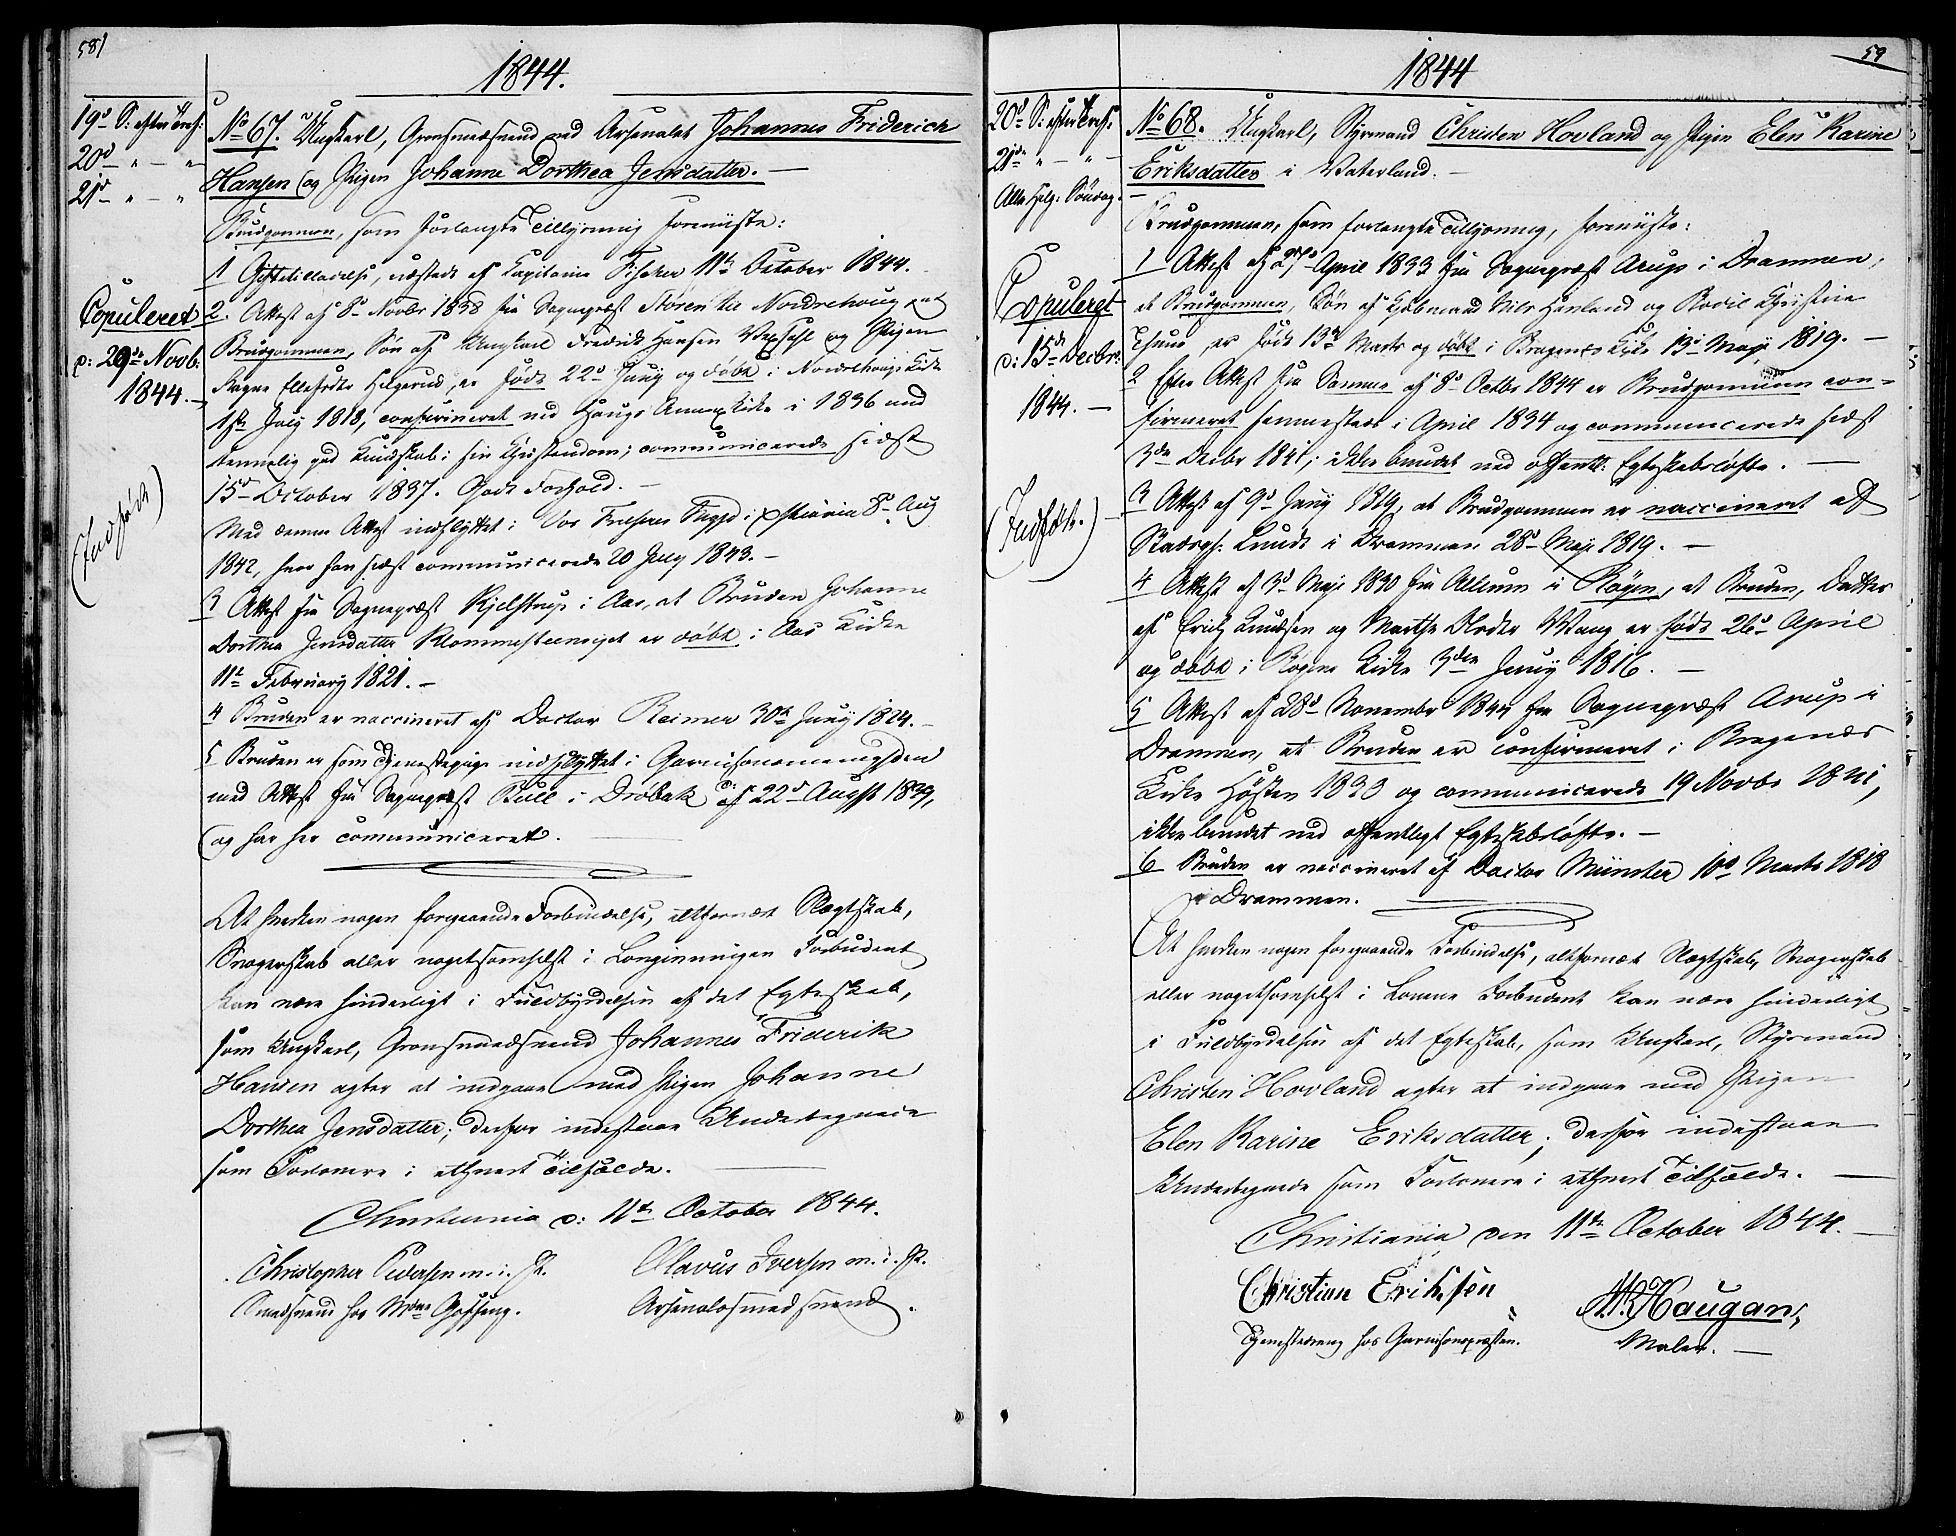 58
1844.
19d S: efter Tref:
20d " — "
21d " — "
Copuleret
d: 29de Novb:
1844.
(Indført)
No 67. Ungkarl, ved Arsenalet Johannes Friderich
Hansen og Pigen Johanne Dorthea Jensdatter. —
Brudgommen, som forlangte Tillysning foreviiste:
1 Giftetilladelse, udstedt af Kapitaine Fischer 11te October 1844.
2. Attest af 8d Novbr 1838 fra Sognepræst Støren til Norderhoug, at
Brudgommen, Søn af Ungkarl Fredrik Hansen og Pigen
Helgerud, er født 22d Juny og døbt i Norderhougs Kirke
1ste July 1818, confirmeret ved Hougs Annex Kirke i 1836 med
temmelig god Kundskab i sin Christendom; communicerede sidst
15d October 1837. Godt Forhold. —
Med denne Attest indflyttet i Vor Frelsers i Xstiania 8d Aug
1842, hvor han sidst communicerede 20 July 1843. —
3 Attest fra Sognepræst Kjelstrup i Aas, at Bruden Johanne
Dorthea Jensdatter er døbt i Aas Kirke
11te February 1821. —
4 Bruden er vaccineret af Doctor Reimer 30te Juny 1824. —
5 Bruden er som Tjenestepige indflyttet i Garnisonsmenigheden
med Attest fra Sognepræst Bull i Drøbak d: af 22d August 1839,
og har her communiceret. —
At hverken nogen foregaaende Forbindelse, altfornær Slægtskab,
Svogerskab eller nogetsomhelst i Lovgivningen Forbudent
kan være hinderligt i Fuldbyrdelsen af det Egteskab,
som Ungkarl, Johannes Friderik
Hansen agter at indgaae med Pigen Johanne
Dorthea Jensdatter; derfor indestaae Undertegnede
som Forlovere i ethvert Tilfælde. —
Christiania d: 11te October 1844.
Christopher Pedersen m. i. P. Olavus Iversen m. i. P.
Smedsvend hos Arsenalsmedsvend.
59
1844
20d S: efter Tref:
21de " — " —
Alle Helg: Søndag.
Copuleret
d: 15de Decbr:
1844. —
(Indført.)
No 68. Ungkarl, Styrmand Christen Hovland og Pigen Elen Karine
Eriksdatter i Vaterland. —
Brudgommen, som forlangte Tillysning, foreviiste:
1 Attest af April 1833 fra Sognepræst Arup i Drammen,
at Brudgommen, Søn af Nils Hovland og Bodil Christine
er født 13de Marts og døbt i Bragenæs Kirke 13d Maji 1819. —
2 Efter Attest fra Samme af 8d Octbr 1844 er Brudgommen con-
firmeret sammesteds i April 1834 og communicerede sidst
3die Decbr 1841; ikke bundet ved offentl: Egteskabsløfte. —
3 Attest af 9d Juny 1819, at Brudgommen er vaccineret af
Lund i Drammen 28d Maji 1819. —
4 Attest af 3d Maji 1830 fra Allum i Røgen, at Bruden, Datter
af Erich Knudsen og Marthe Olsdtr Wang er født 26d April
og døbt i Røgens Kirke 3die Juny 1816. —
5 Attest af 28d Novembr 1844 fra Sognepræst Arup i
Drammen, at Bruden er confirmeret i Bragenæs
Kirke Høsten 1833 og communicerede 19 Novbr 1841,
ikke bundet ved offentligt Egteskabsløfte. —
6 Bruden er vaccineret af Doctor Münster 10d Marts 1818
i Drammen.
At hverken nogen foregaaende Forbindelse, altfornær Slægtskab, Svogerskab
eller nogetsomhelst i Lovene Forbudent kan være hinderligt
i Fuldbyrdelsen af det Egteskab, som Ungkarl, Styrmand
Christen Hovland agter at indgaae med Pigen
Elen Karine Eriksdatter; derfor indestaae
Undertegnede som Forlovere i ethvert Tilfælde. —
Christiania den 11te October 1844. —
Christian Eriksen Haugan,
Tjenestedreng hos Garnisonspræsten. Maler. —